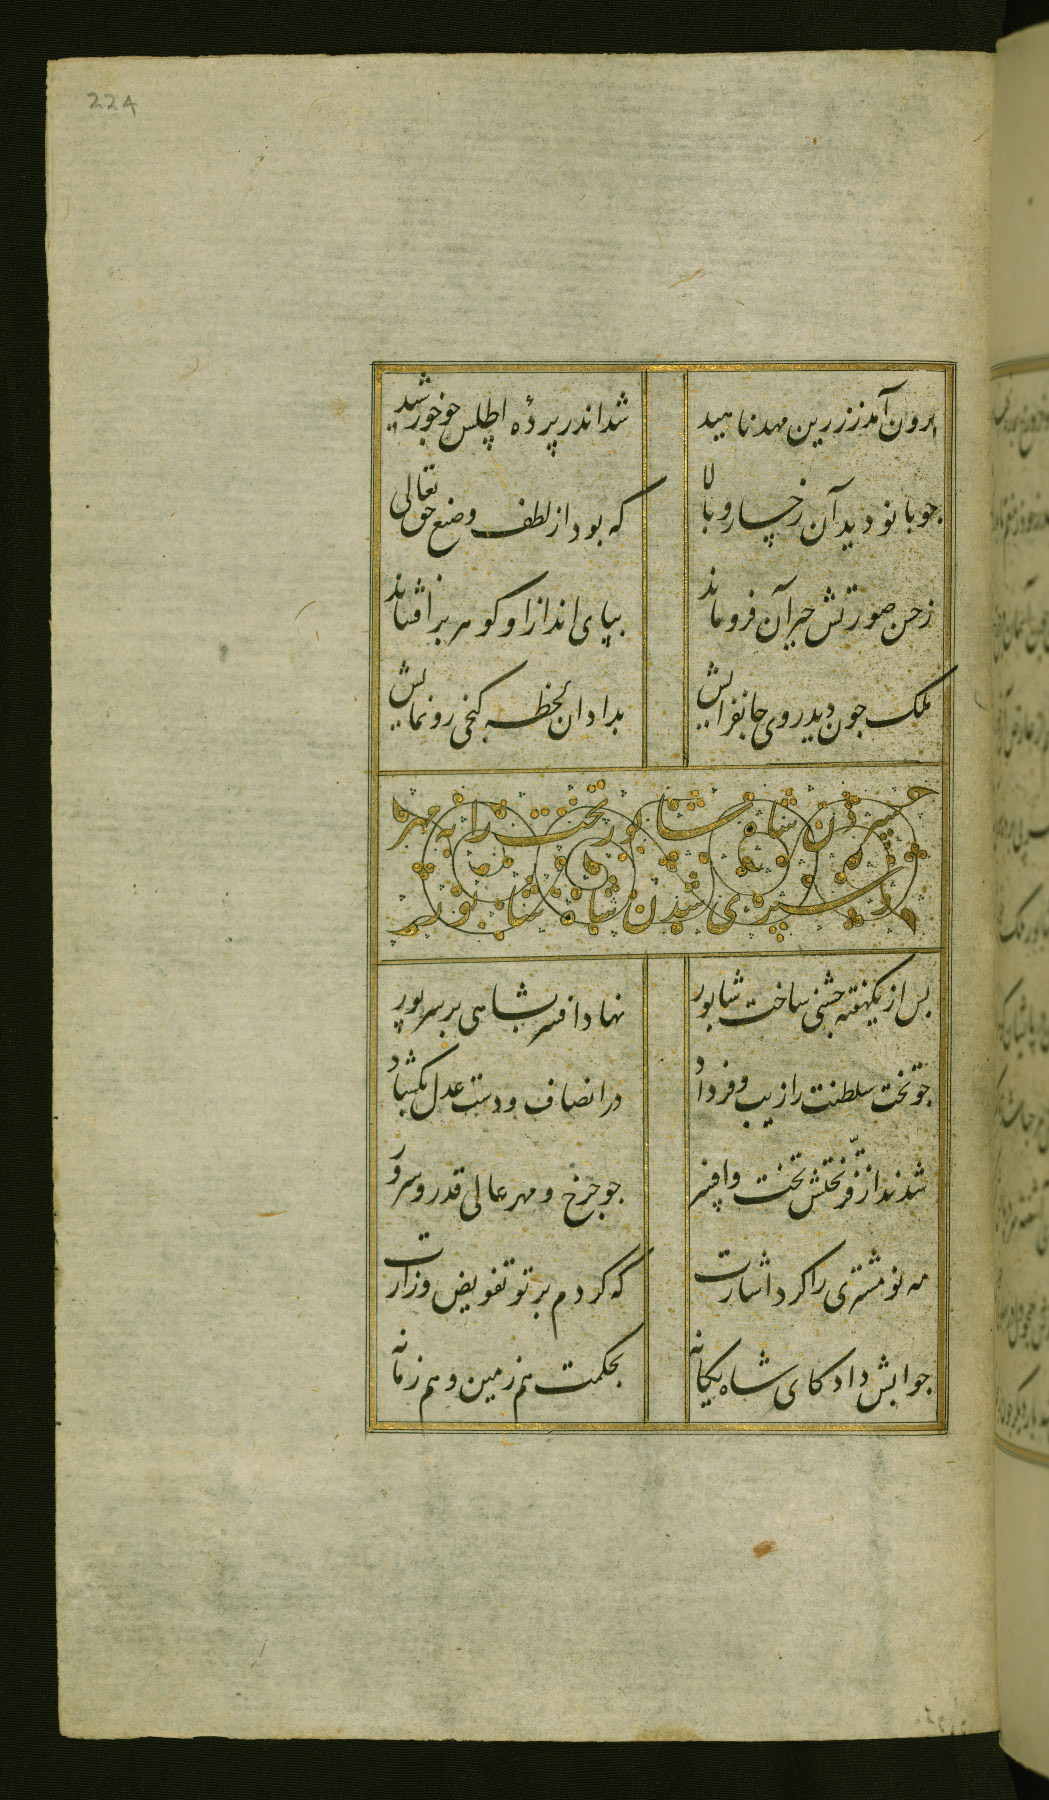 224
برون آمد ز زرین مهد ناهید شد اندر پردهٔ اطلس چو خورشید
چو بانو دید آن رخسار و بالا که بود از لطف وضع حق تعالی
ز حسن صورتش حیران فروماند بپای انداز او گوهر برافشاند
ملک چون دید روی جانفزایش بداد آن لحظه گنجی رونمایش
سپردن شاه شاپور تخت را به مهر
و سپری شدن شاه شاپور
پس از یکهفته جشنی ساخت شاپور نهاد افسر بشاهی بر سر پور
چو تخت سلطنت را زیب و فر داد در انصاف و دست عدل بگشاد
شدند از فر بختش تخت و افسر چو چرخ و مهر عالی قدر و سرور
مه نو مشتری را کرد اشارت که کردم بر تو تفویض وزارت
جوابش داد کای شاه یگانه بحکمت هم زمین و هم زمانه